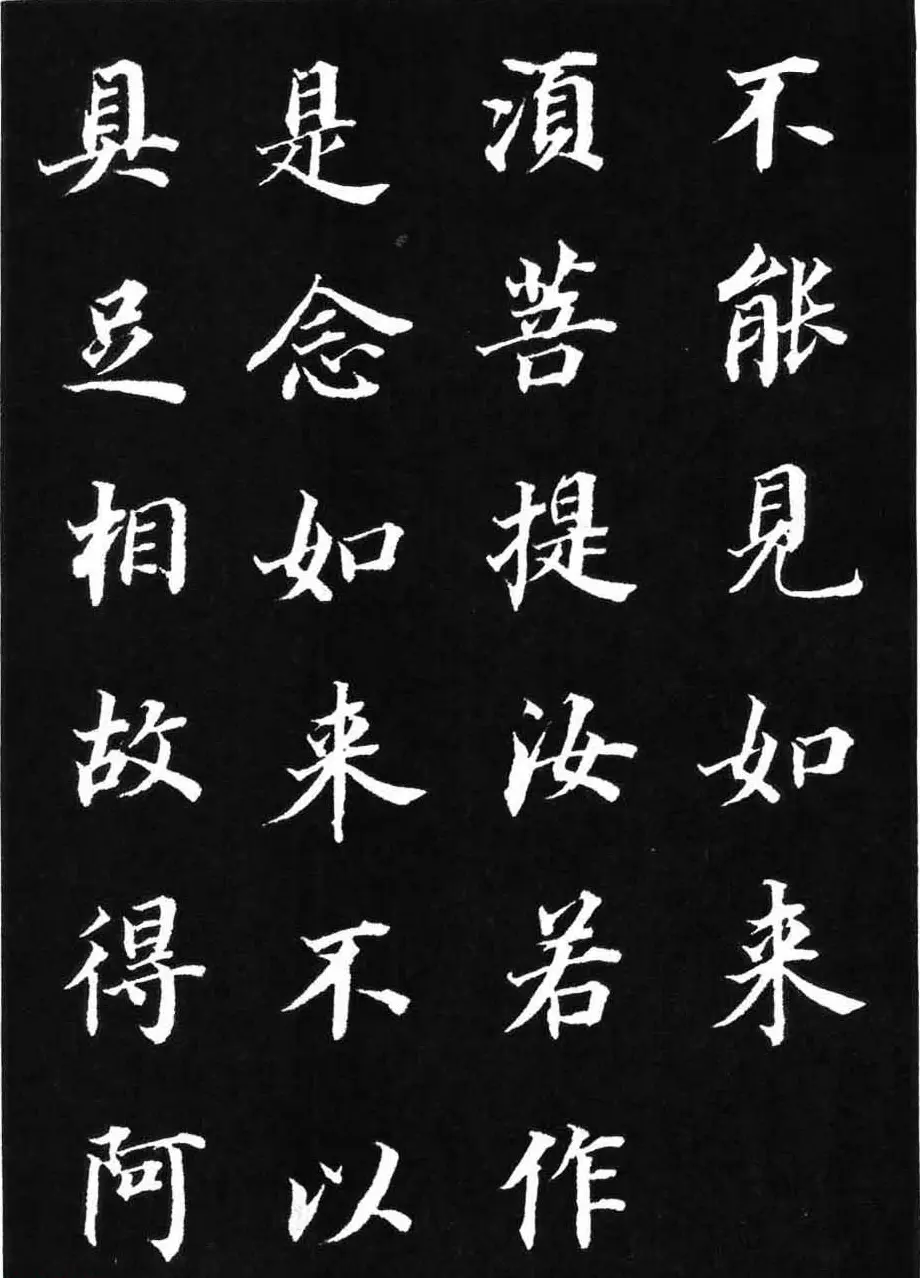 不能見如来
須菩提汝若作
是念如来不以
具足相故得阿